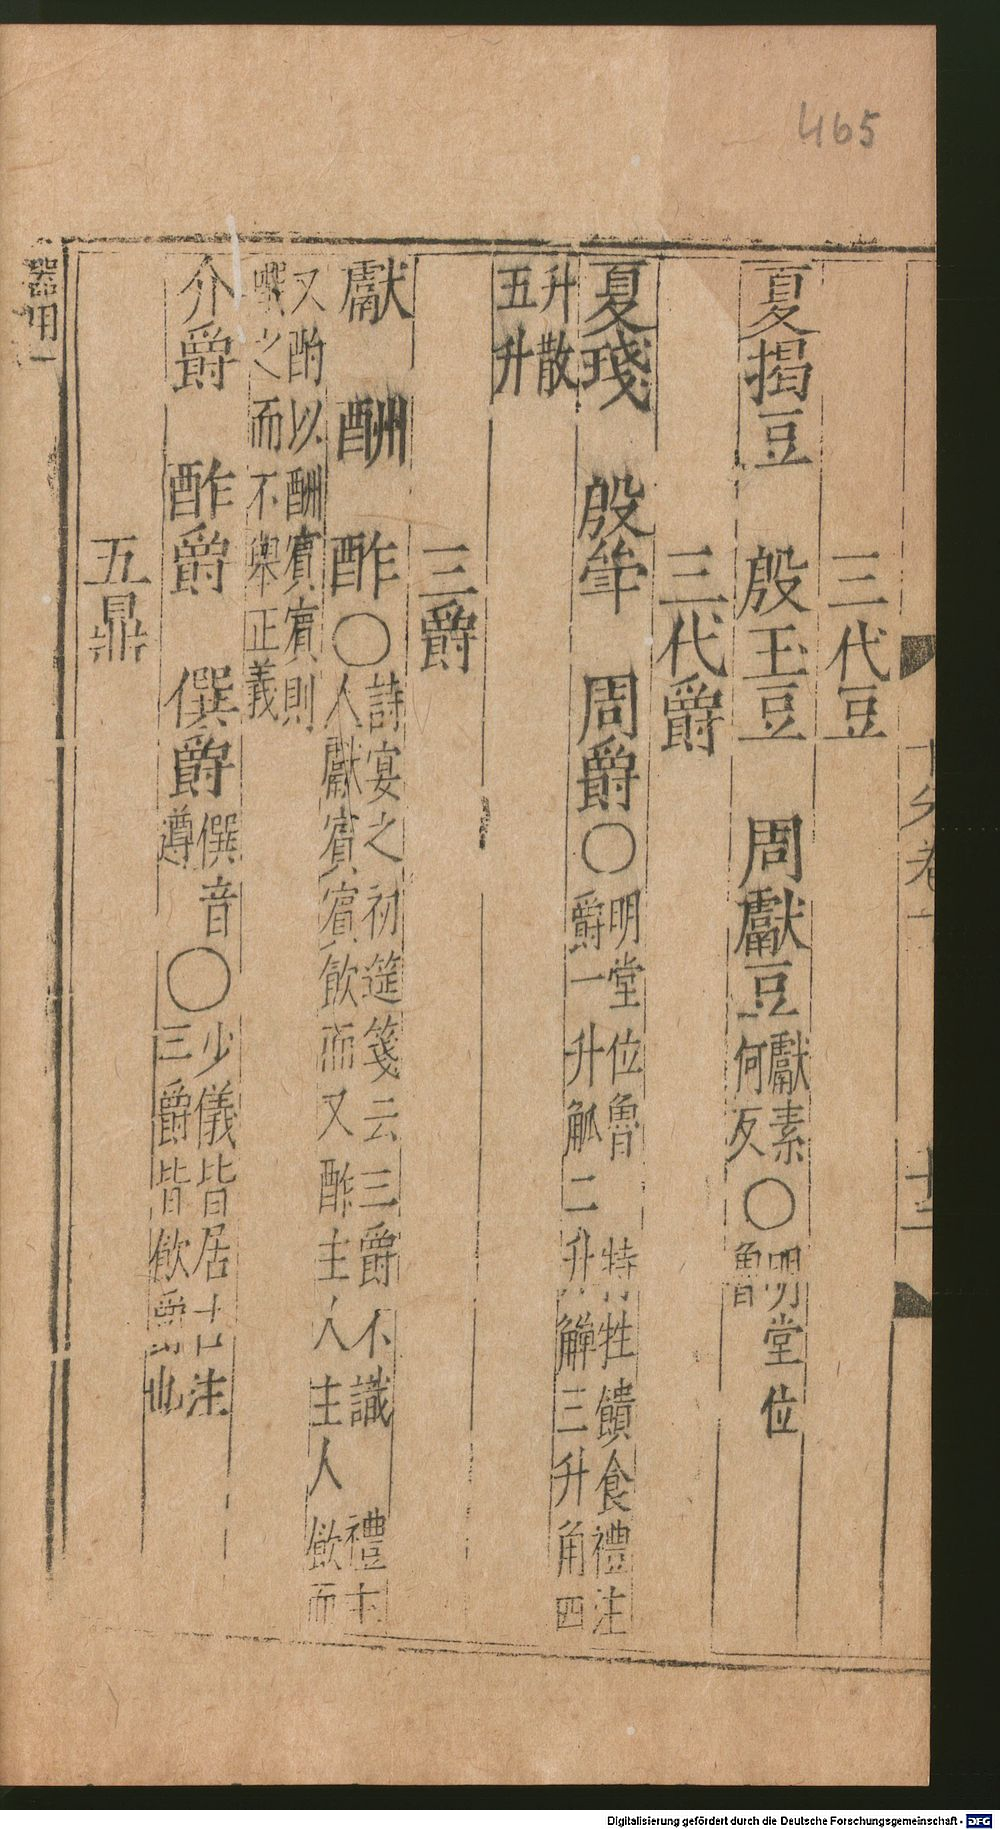 465
三代豆
夏揭豆　殷玉豆　周獻豆 獻素何反 ○ 明堂位 魯
三代爵
夏琖　殷斝　周爵 ○ 明堂位魯 特牲饋食禮注 爵一升觚二升觶三升角四
升散五升
三爵
獻　酬　酢 ○ 詩宴之初筵箋云三爵不識 禮主人獻賓賓飲而又酢主人主人飲而
又酌以酬賓賓則嚌之而不舉正義
介爵　酢爵　僎爵 僎音遵 ○ 少儀皆居右注三爵皆飲爵也
五鼎
器用一
Digitalisierung gefördert durch die Deutsche Forschungsgemeinschaft - DFG